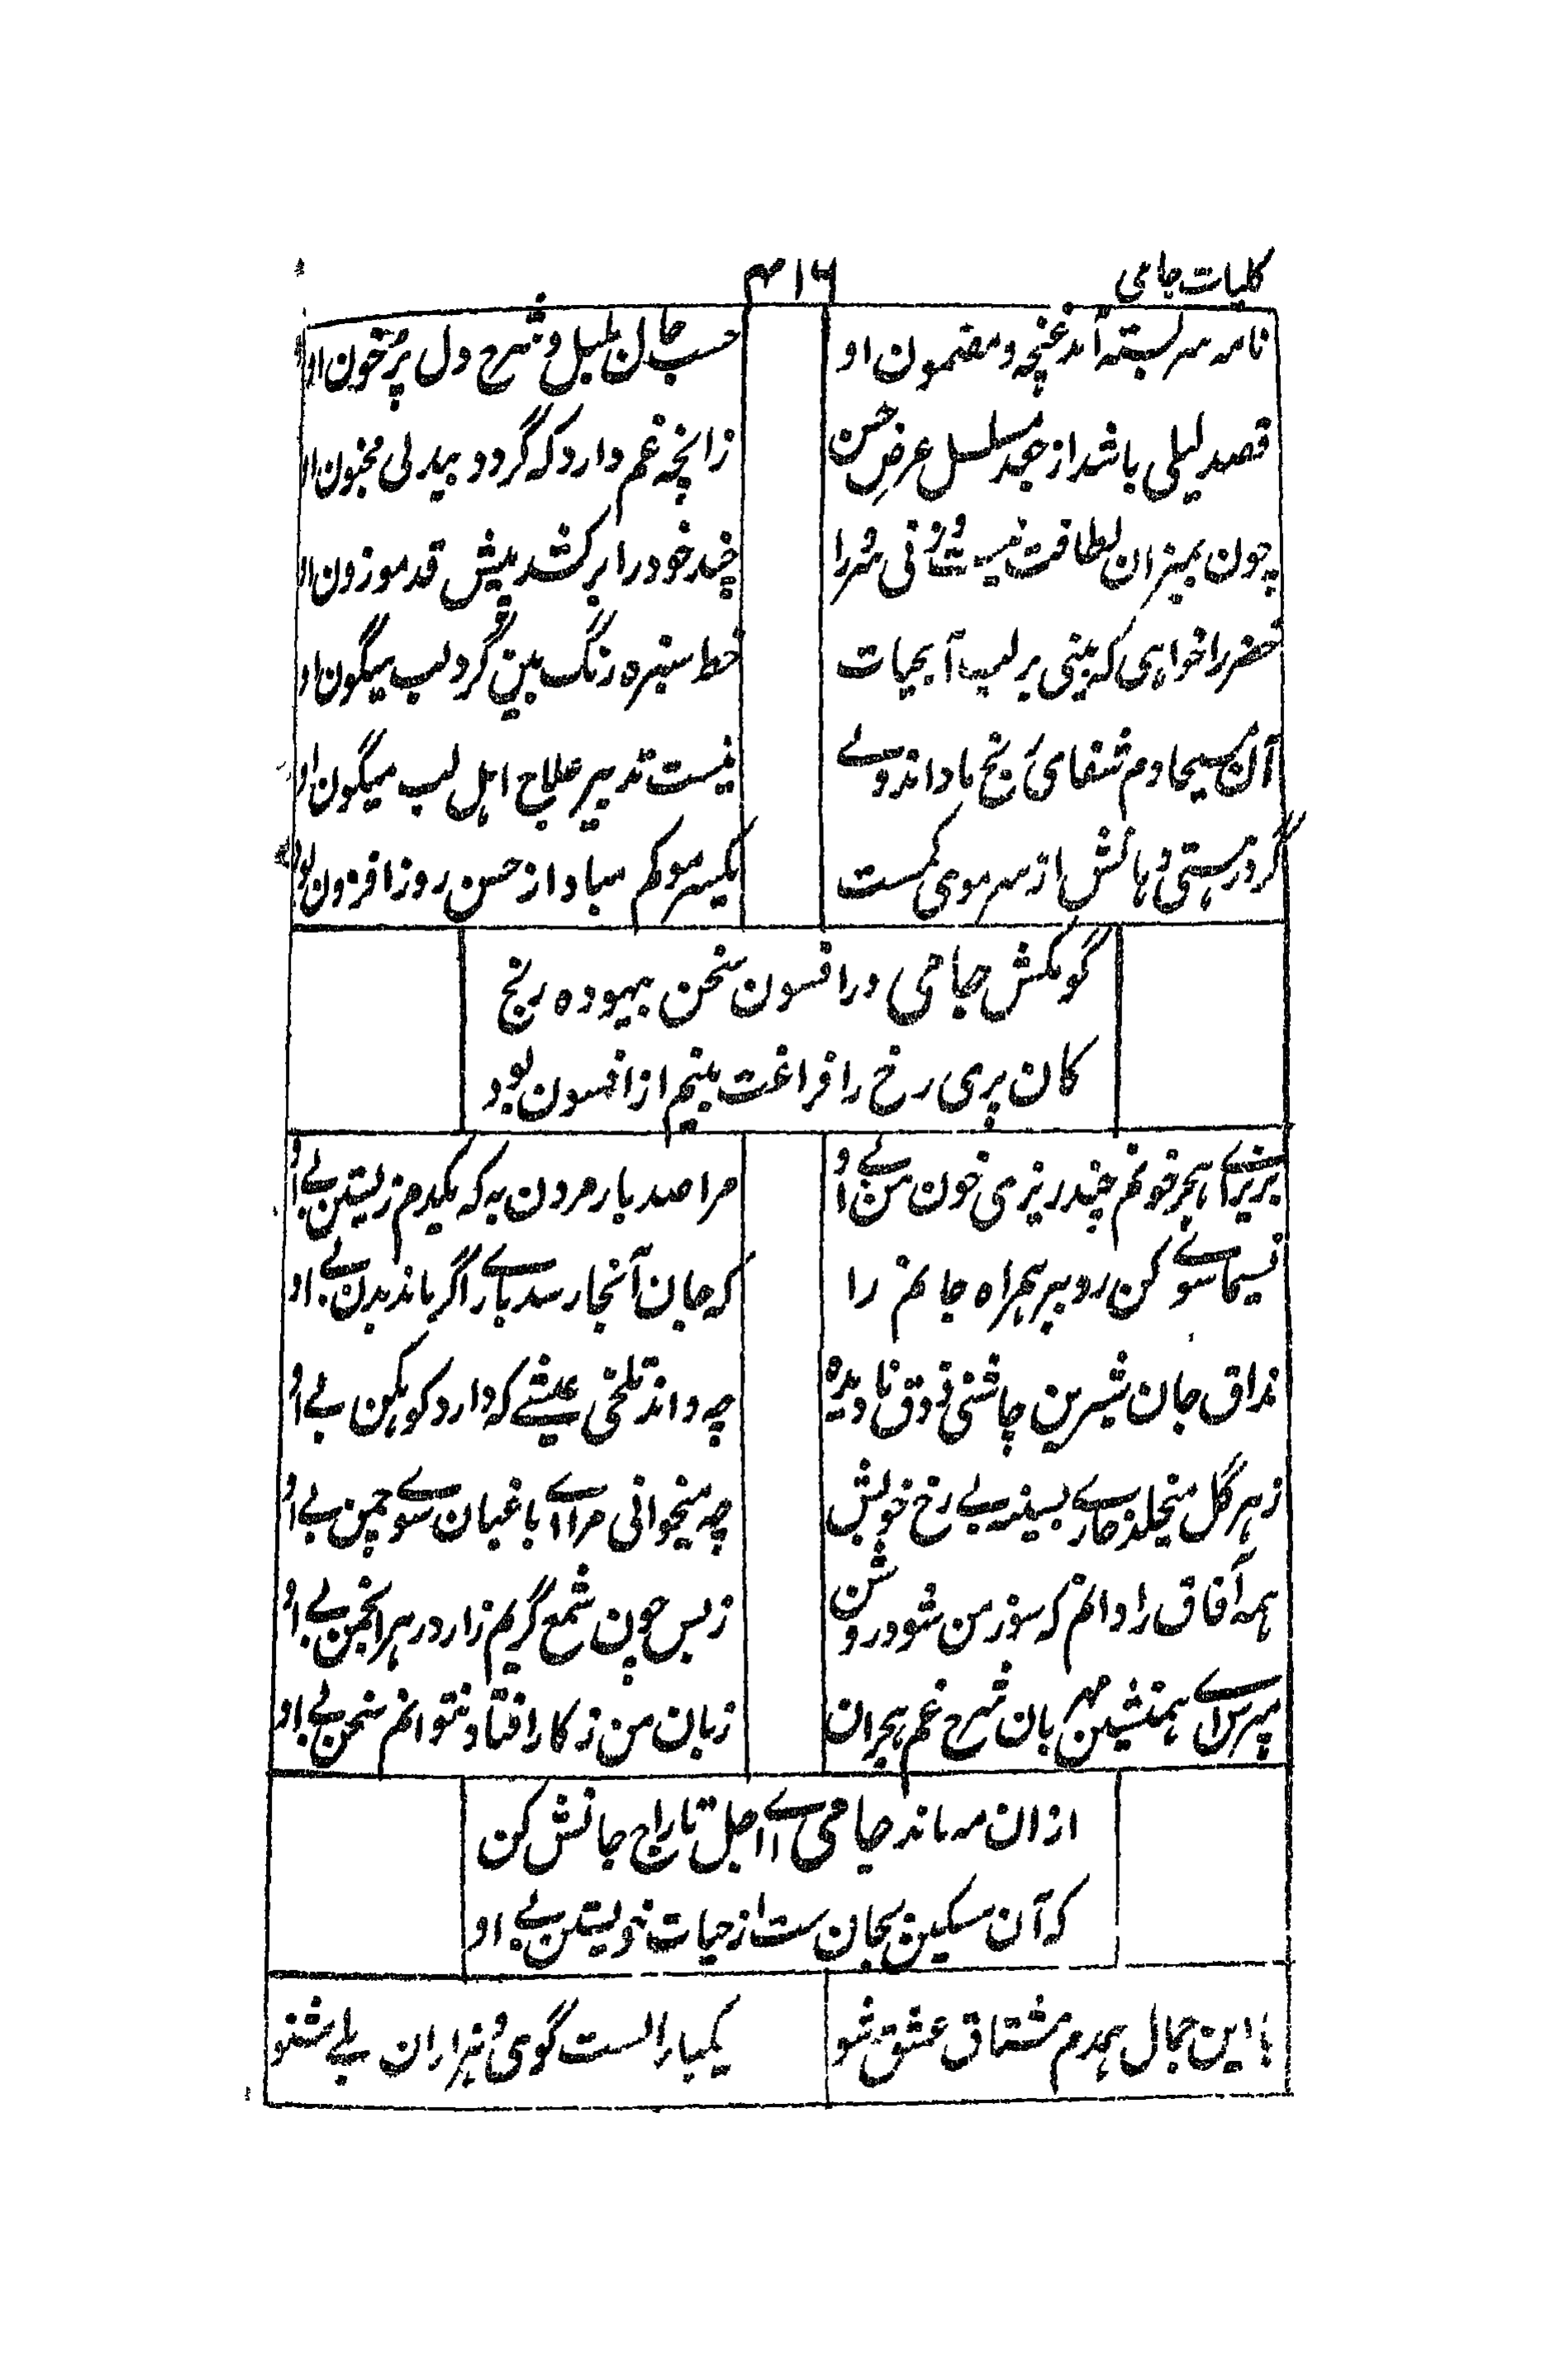 کلیات جامی
۴۱۶
نامه سر بسته آمد غنچه و مضمون او
حسب حال بلبل و شرح دل پر خون او
قصد لیلی باشد از جعد مسلسل عرض حسن
زانچه غم دارد که گردد بیدلی مجنون او
چون بمیزان لطافت نیست وزنی سرو را
چند خود را برکشد پیش قد موزون او
خضر را خواهی که بینی بر لب آبحیات
خط سبزه رنگ بین گرد لب میگون او
آن مسیحا دم شفای رنج ما داند ولے
نیست تدبیر علاج اهل لب میگون او
گرد هستی دهانش از سر موی کمست
یکسر مو کم مبادا از حسن روز افزون او
گو مکش جامی در افسون سخن بیهوده رنج
کان پری رخ را فراغت بینم از افسون بود
بریز اے هجر خونم چند ریزی خون من بے او
مرا صد بار مردن به که یکدم زیستن بے او
نسیما سوے کن رو ببر همراه جانم را
که جان آنجا رسد بارے اگر ماند بدن بے او
مذاق جان شیرین چاشنی ذوق نادیده
چه داند تلخی عیشے که دارد کوهکن بے او
ز هر گل میخلد خارے بسینه بے رخ خویش
چه میخوانی مرا اے باغبان سوے چمن بے او
همه آفاق را دانم که سوز من شود روشن
ز بس چون شمع گریم زار در هر انجمن بے او
مپرس اے همنشین مهربان شرح غم هجران
زبان من ز کار افتاد نتوانم سخن بے او
ازان مه ماند جامی اے اجل تاراج جانش کن
که آن مسکین بجان ست از حیات خویشتن بے او
با این جمال همدم مشتاق عشق شو
یکبار الست گوی و هزاران بلے شنو